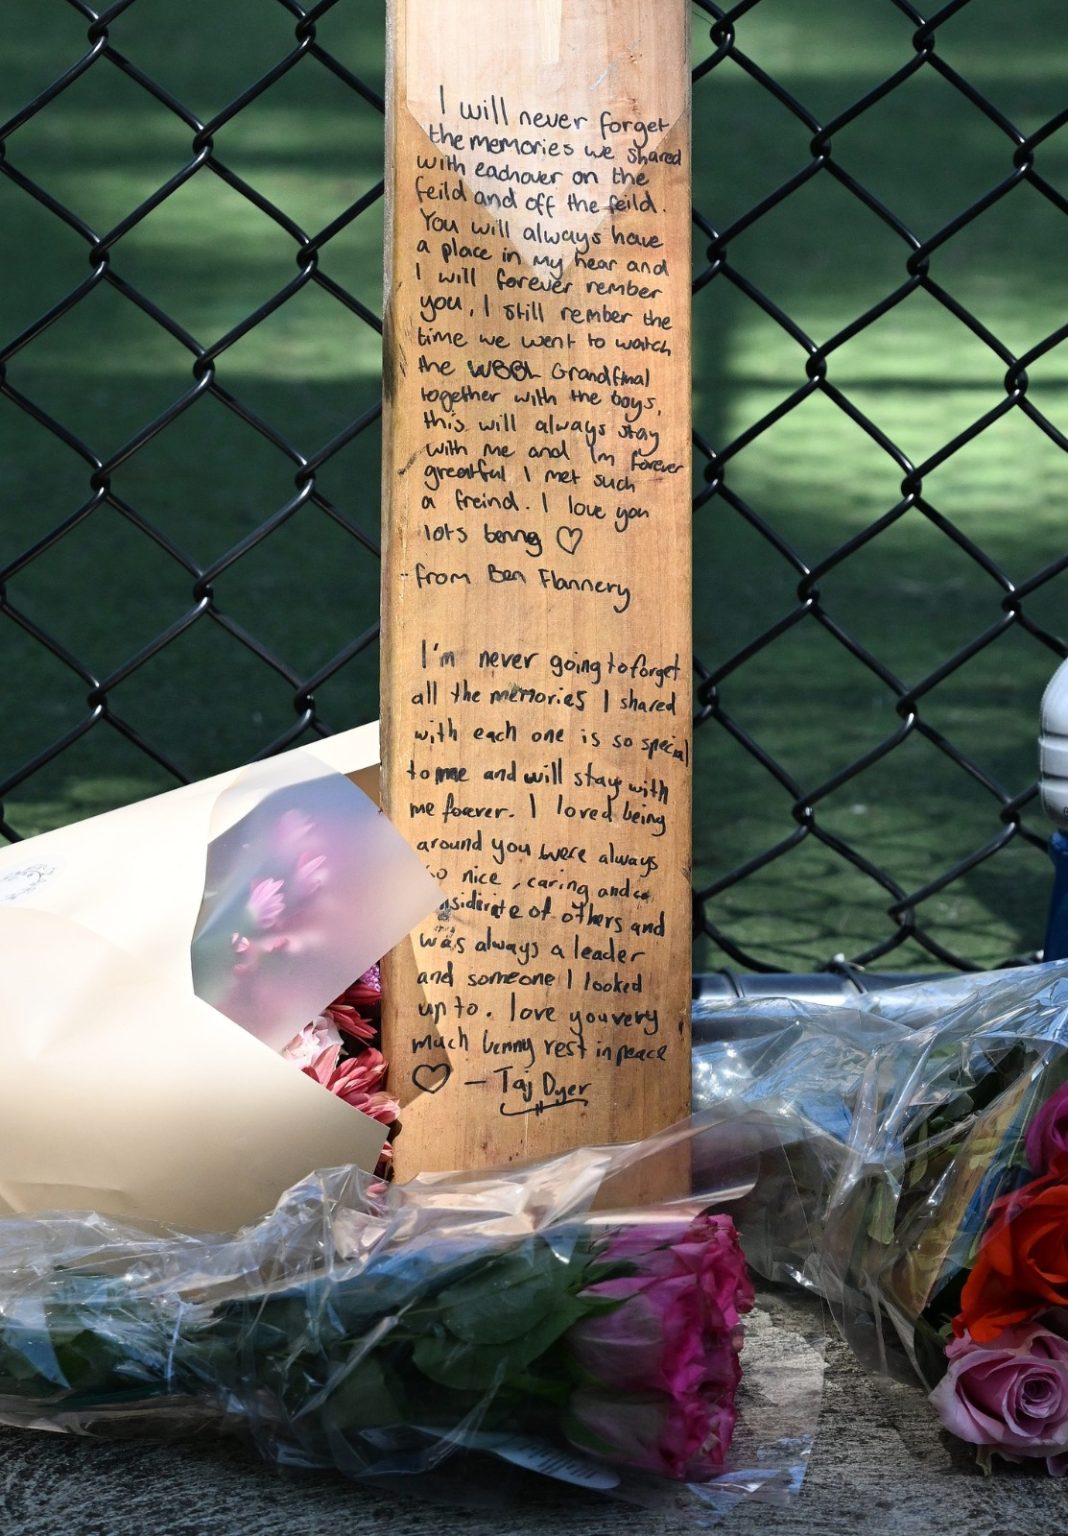 I will never forget
the memories we shared
with eachover on the
feild and off the feild.
You will always have
a place in my hear and
I will forever rember
you, I still rember the
time we went to watch
the WBBL Grandfinal
together with the boys,
this will always stay
with me and Im forever
greatful I met such
a freind. I love you
lots benng ♡
-from Ben Flannery
I'm never going to forget
all the memories I shared
with each one is so special
to me and will stay with
me forever. I loved being
around you were always
so nice, caring and co
nsidirate of others and
was always a leader
and someone I looked
up to. love you very
much benny rest in peace
♡ - Taj Dyer